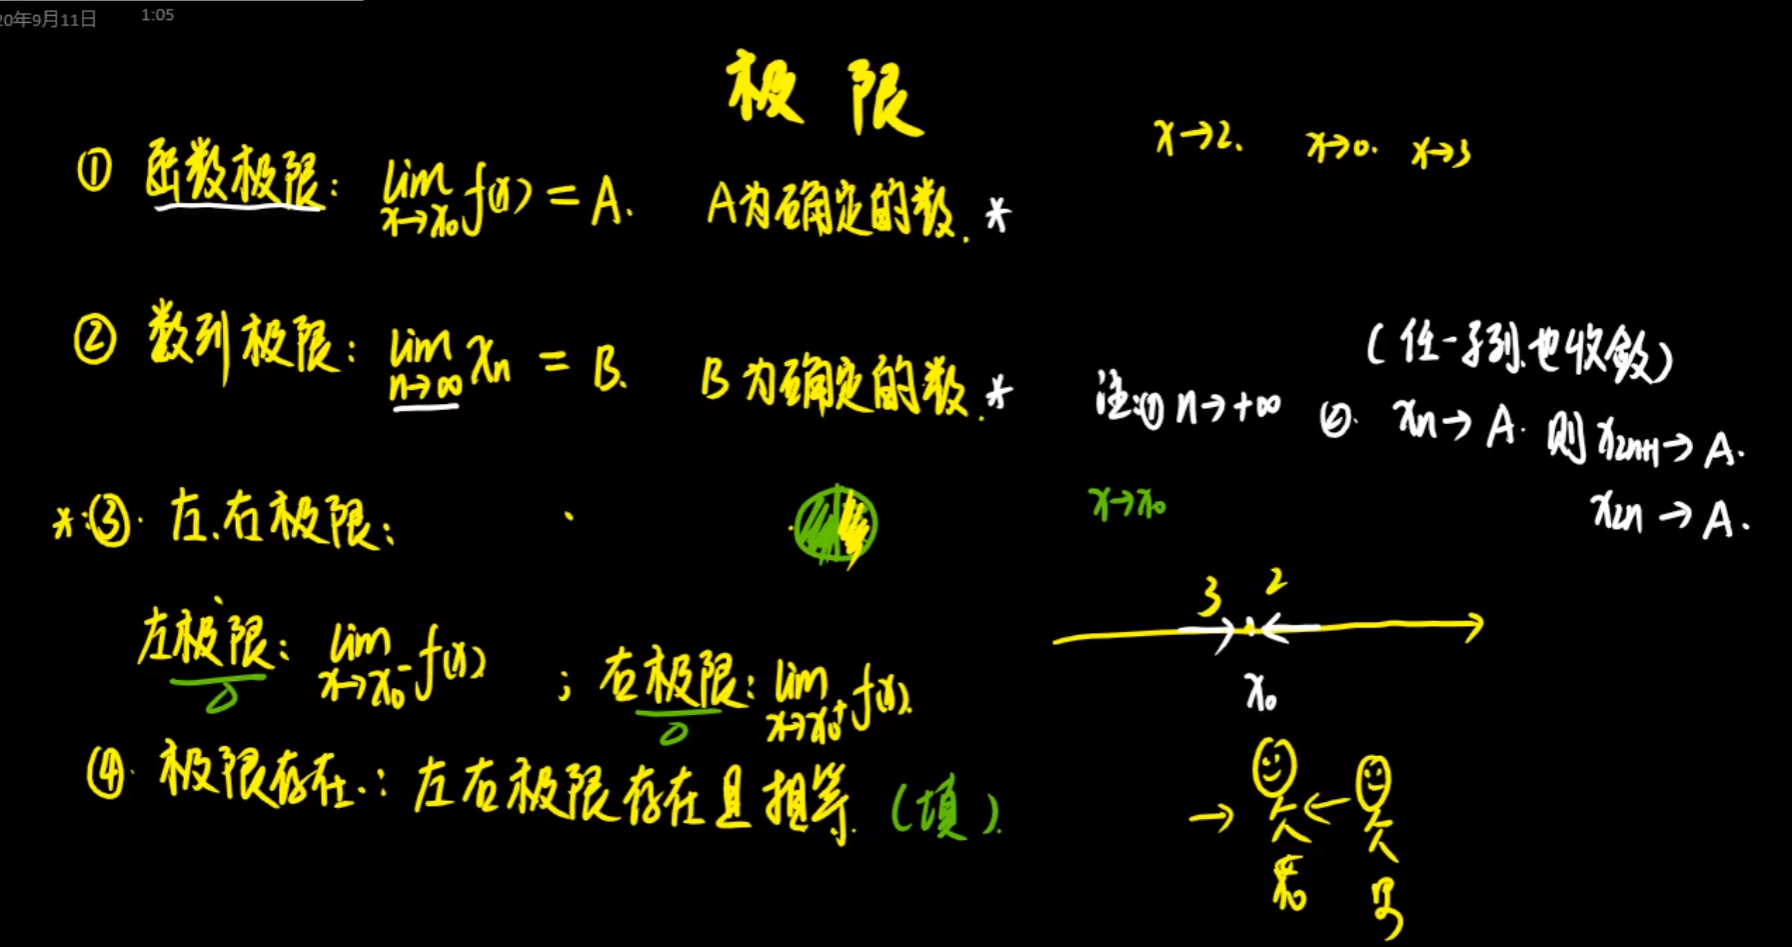 20年9月11日 1:05
极限
x→2. x→0. x→3
① 函数极限: lim x→x₀ f(x) = A. A为确定的数. *
② 数列极限: lim n→∞ xₙ = B. B为确定的数. *
(任一子列也收敛)
注:① n→+∞ ②. xₙ→A. 则 x₂ₙ₊₁→A.
x₂ₙ→A.
*③. 左.右极限:
x→x₀
3 2
x₀
左极限: lim x→x₀⁻ f(x) ; 右极限: lim x→x₀⁺ f(x).
④. 极限存在.: 左右极限存在且相等. (填).